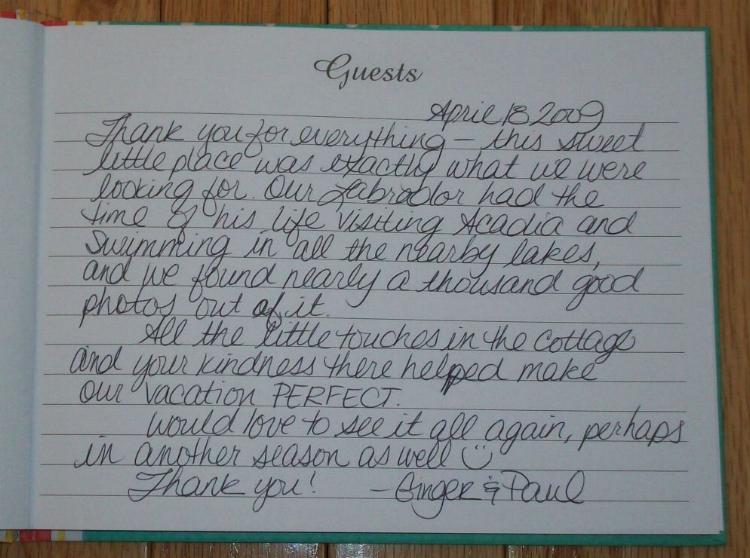 Guests
April 18 2009
Thank you for everything – this sweet
little place was exactly what we were
looking for. Our Labrador had the
time of his life visiting Acadia and
swimming in all the nearby lakes,
and we found nearly a thousand good
photos out of it.
All the little touches in the cottage
and your kindness there helped make
our vacation PERFECT.
Would love to see it all again, perhaps
in another season as well ☺
Thank you! – Ginger & Paul